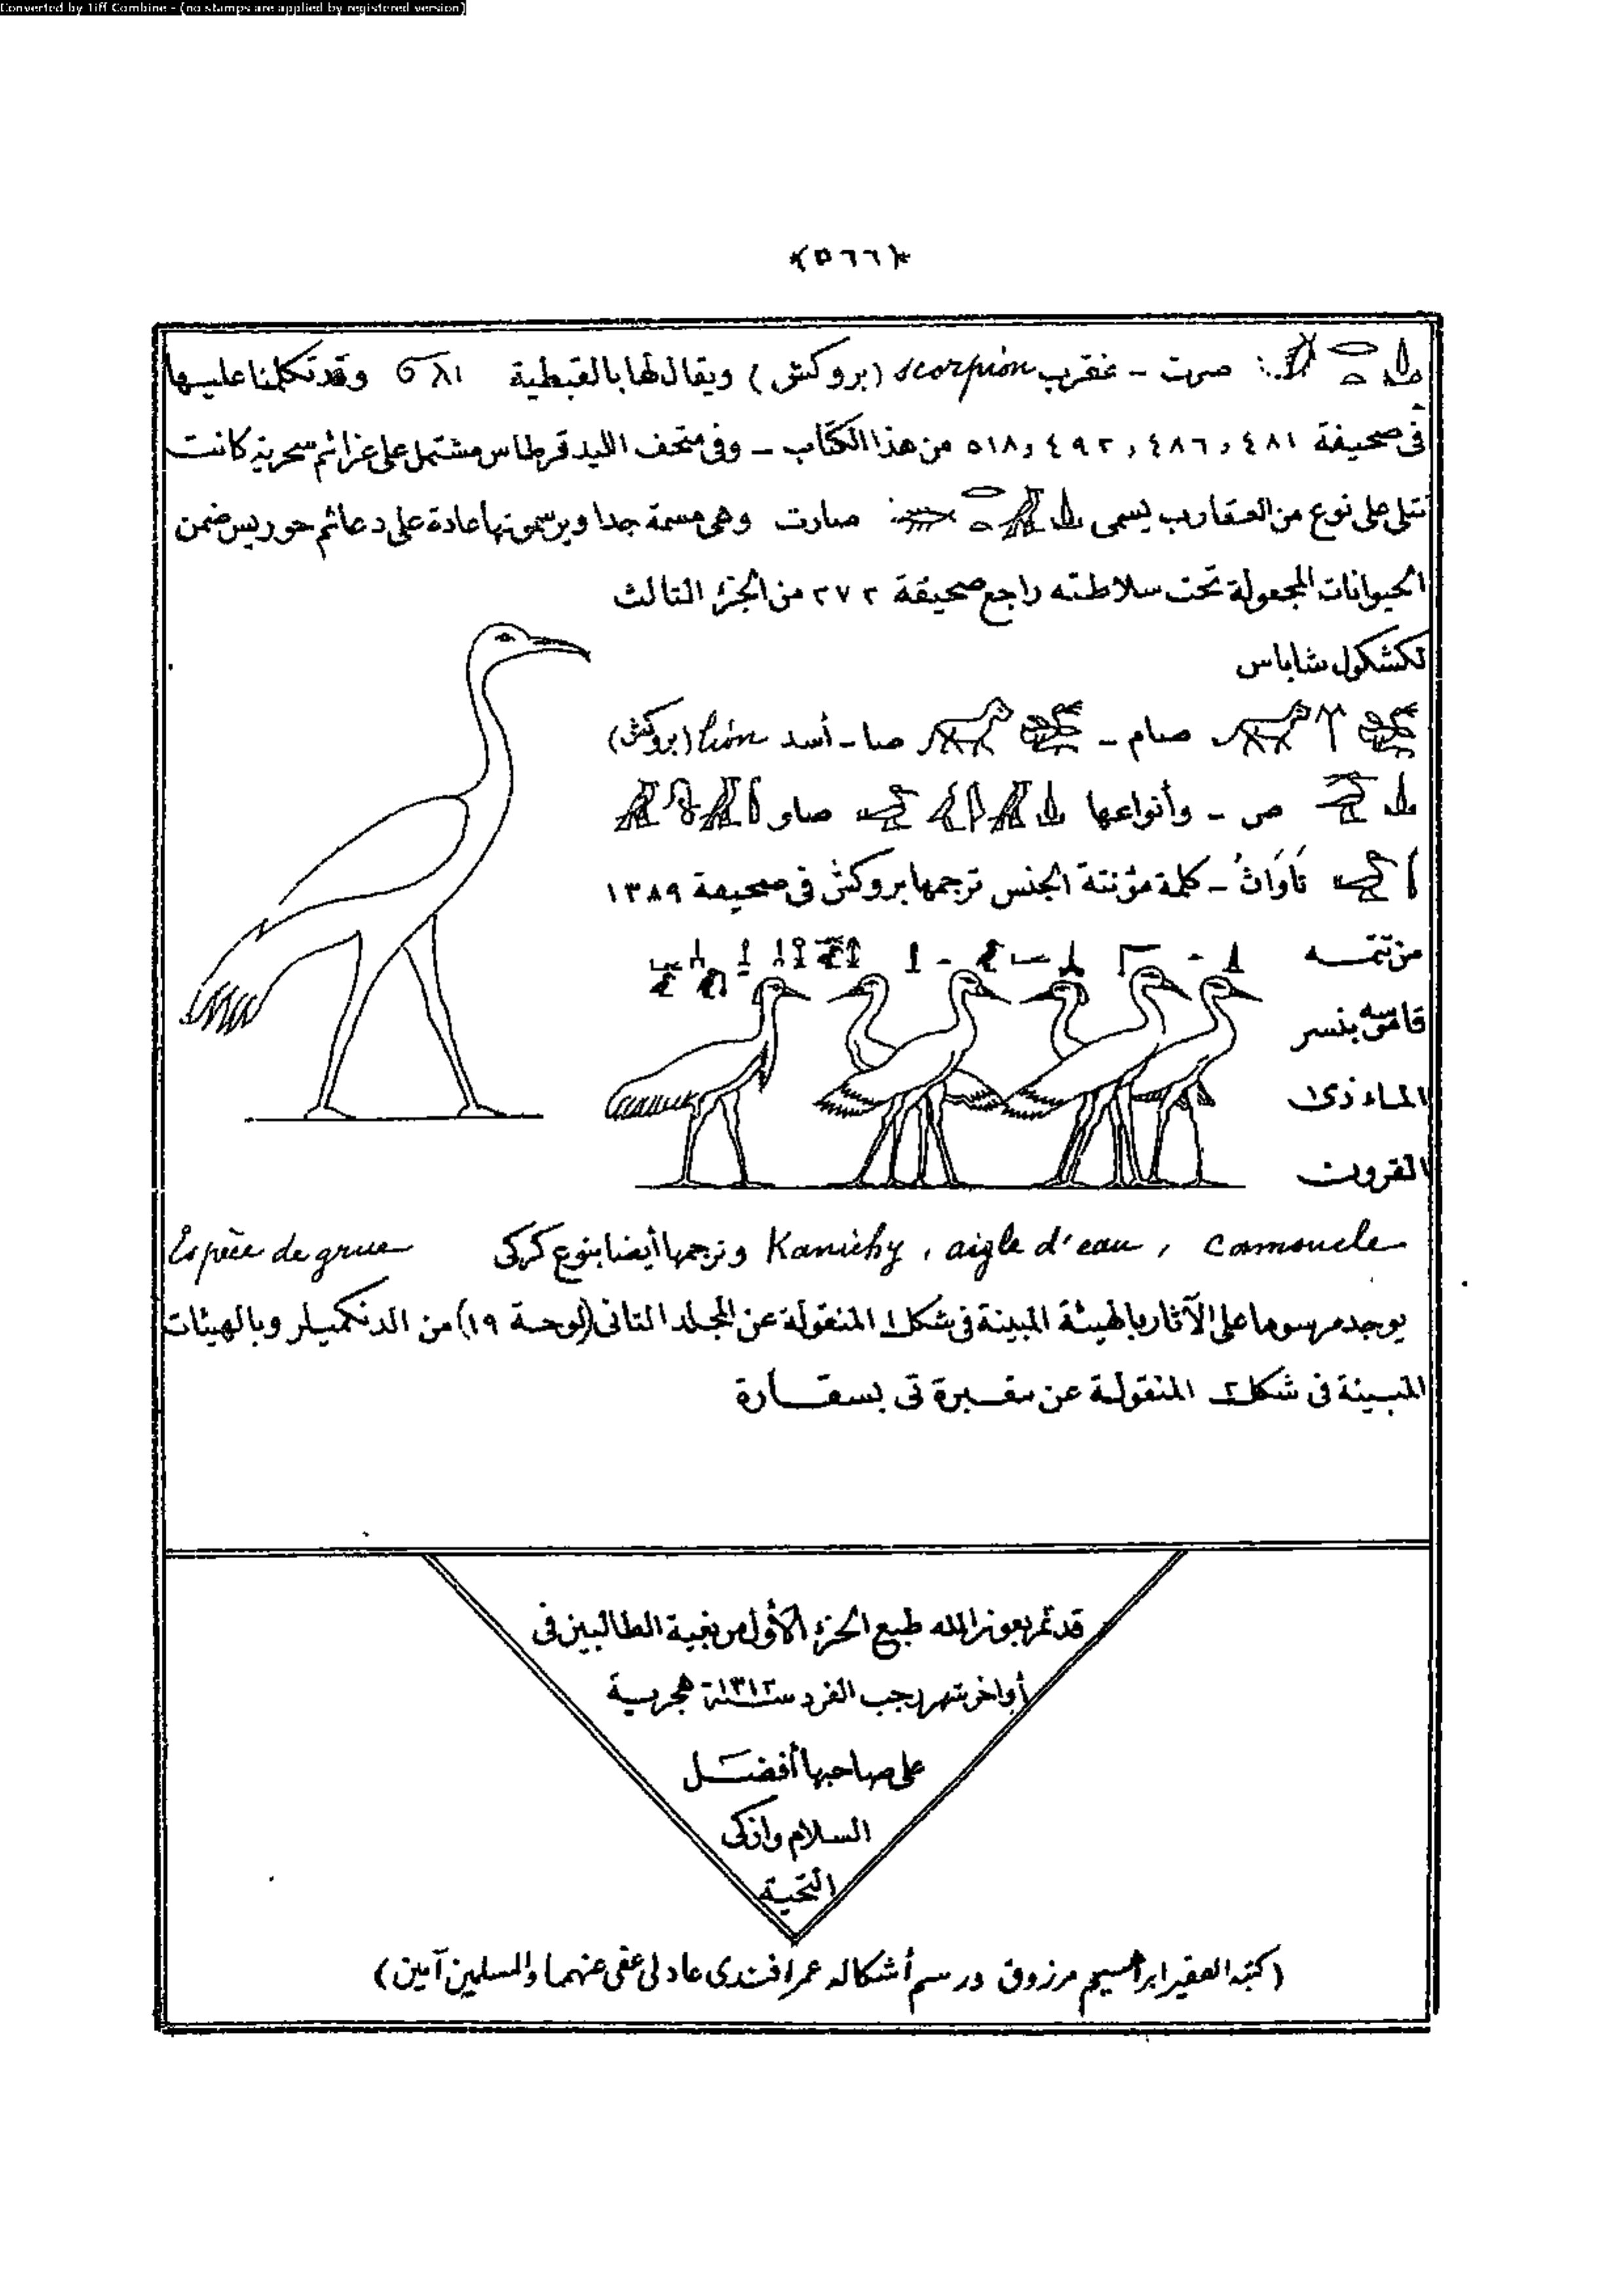 Converted by Tiff Combine - (no stamps are applied by registered version)
﴿٥٦٦﴾
صرت - عقرب scorpion (بروكش) ويقال لها بالقبطية وقد تكلمنا عليها
فى صحيفة ٤٨١ و ٤٨٦ و ٤٩٢ و ٥١٨ من هذا الكتاب - وفى متحف الليد قرطاس مشتمل على عزائم سحرية كانت
تتلى على نوع من العقارب يسمى صارت وهى مسمة جدا ويرسمونها عادة على دعائم حوريس ضمن
الحيوانات المجعولة تحت سلاطته راجع صحيفة ٢٧٢ من الجزء الثالث
لكشكول شاباس
صام - صا - أسد lion (بروكش)
ص - وأنواعها صاو
تَاوَاتُ - كلمة مؤنثة الجنس ترجمها بروكش فى صحيفة ١٣٨٩
من تتمة
قاموسه بنسر
الماء ذى
القرون
Camoucle , aigle d'eau , Kamichy وترجمها أيضا بنوع كركى Espèce de grue
يوجد مرسوما على الآثار بالهيئة المبينة فى شكل ١ المنقولة عن المجلد الثانى (لوحة ١٩) من الدنكميلر وبالهيئات
المبينة فى شكل ٢ المنقولة عن مقبرة تى بسقارة
قد تم بعون الله طبع الجزء الأول من بغية الطالبين فى
أواخر شهر رجب الفرد سنة ١٣١٢ هجرية
على صاحبها أفضل
السلام وازكى
التحية
(كتبه الفقير ابراهيم مرزوق ورسم أشكاله عمر افندى عادلى عفى عنهما والمسلمين آمين)